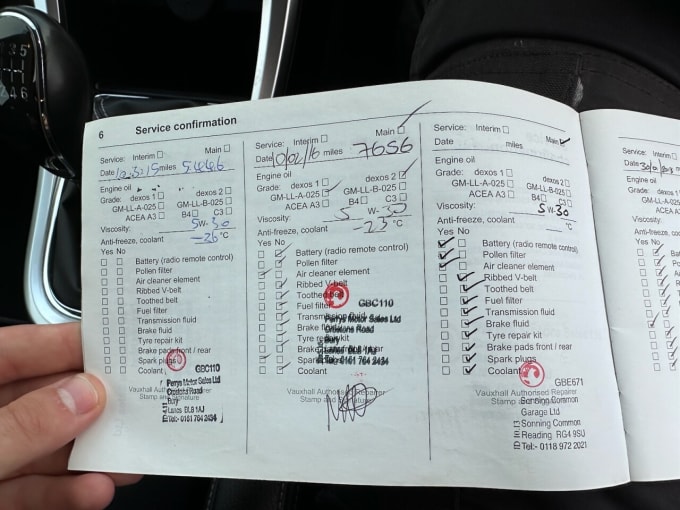 6 Service confirmation
Service: Interim Main
Date 12.3.15 miles 5446
Engine oil
Grade: dexos 1 dexos 2
GM-LL-A-025 GM-LL-B-025
ACEA A3 B4 C3
Viscosity: 5W-30
Anti-freeze, coolant -26 °C
Yes No
Battery (radio remote control)
Pollen filter
Air cleaner element
Ribbed V-belt
Toothed belt
Fuel filter
Transmission fluid
Brake fluid
Tyre repair kit
Brake pads front / rear
Spark plugs
Coolant
GBC110
Vauxhall Authorised Repairer
Stamp and signature
Perrys Motor Sales Ltd
Road
Bury
Lancs BL8 1AJ
Tel:- 0161 764 2434
Service: Interim Main
Date 10/02/16 miles 7656
Engine oil
Grade: dexos 1 dexos 2
GM-LL-A-025 GM-LL-B-025
ACEA A3 B4 C3
Viscosity: 5 W-30
Anti-freeze, coolant -25 °C
Yes No
Battery (radio remote control)
Pollen filter
Air cleaner element
Ribbed V-belt
Toothed belt
Fuel filter
GBC110
Transmission fluid
Perrys Motor Sales Ltd
Brake fluid
Road
Tyre repair kit
Bury
Brake
BL8 1AJ
Spark
0161 764 2434
Coolant
Vauxhall Authorised Repairer
Stamp and signature
Service: Interim Main
Date miles
Engine oil
Grade: dexos 1 dexos 2
GM-LL-A-025 GM-LL-B-025
ACEA A3 B4 C3
Viscosity: 5W-30
Anti-freeze, coolant °C
Yes No
Battery (radio remote control)
Pollen filter
Air cleaner element
Ribbed V-belt
Toothed belt
Fuel filter
Transmission fluid
Brake fluid
Tyre repair kit
Brake pads front / rear
Spark plugs
Coolant
GBE671
Vauxhall Authorised Repairer
Stamp and
Sonning Common
Garage Ltd
Sonning Common
Reading RG4 9SU
Tel:- 0118 972 2021
Service: Inter
Date
Engine oil
Grade: dex
GM-LL-A-
ACEA
Viscosity:
Anti-freeze, coola
Yes No
Batte
Polle
Air c
Ribb
Toot
Fue
Tra
Bra
Tyr
Br
Sp
C
Vau